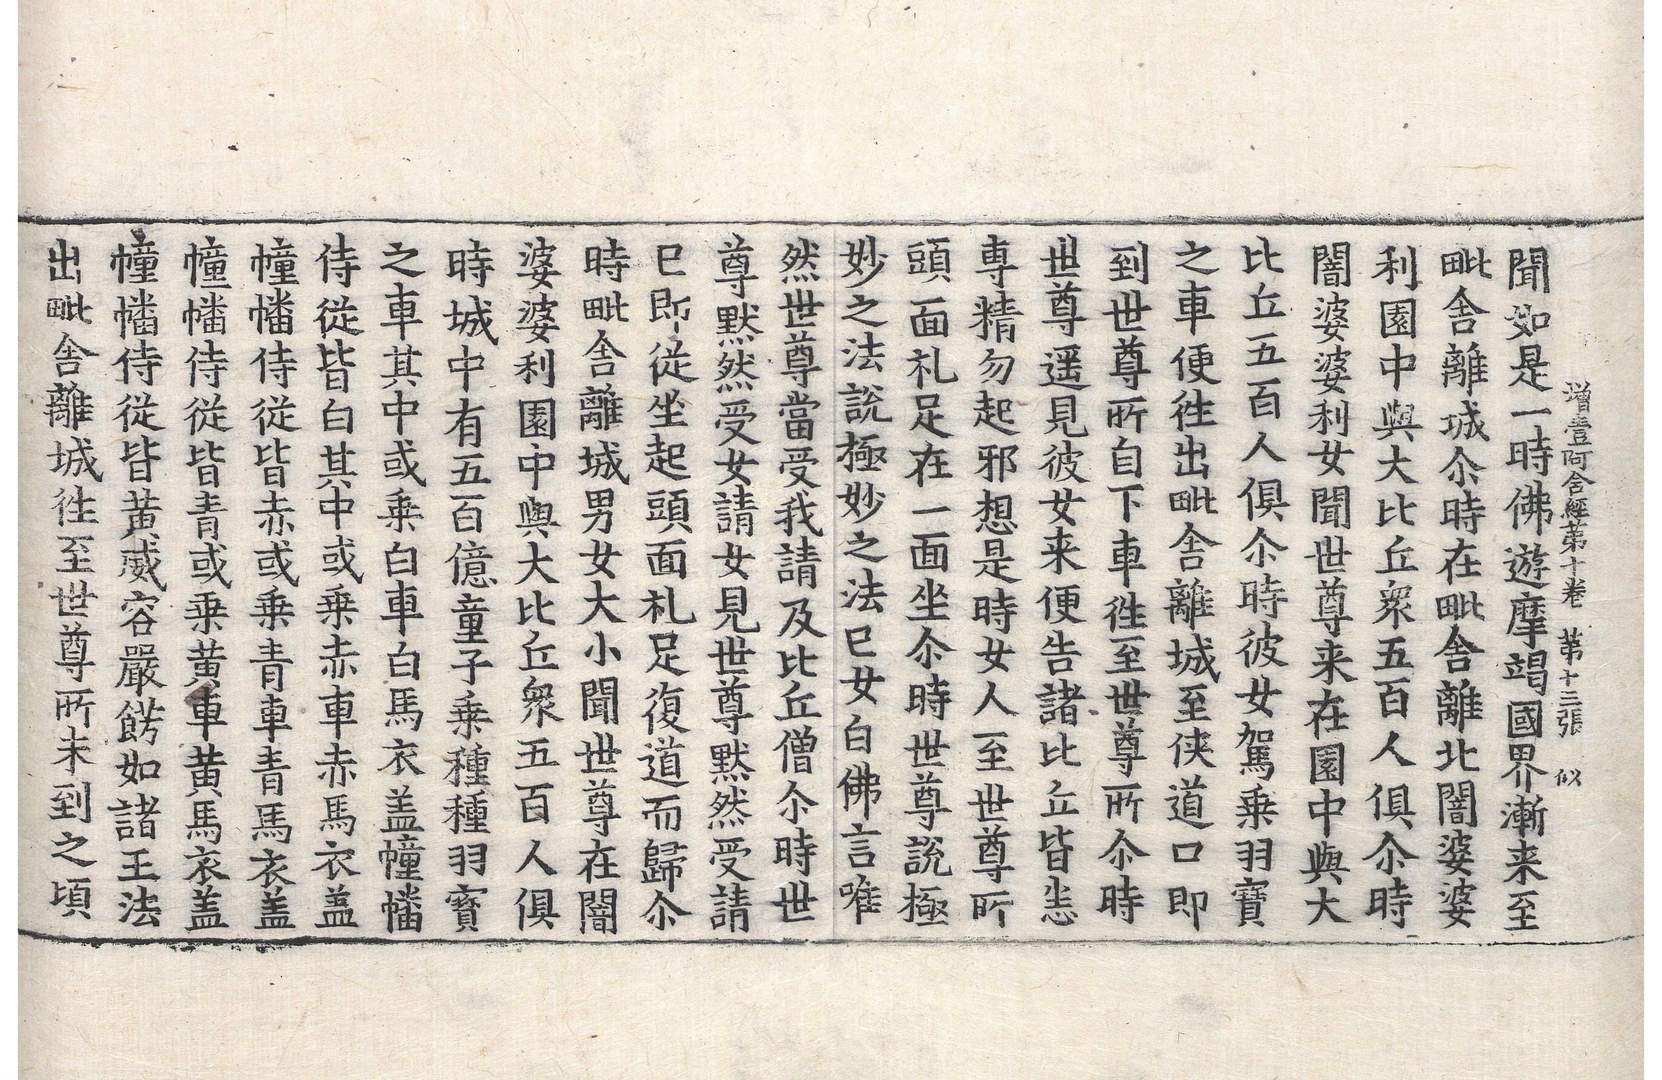 增壹阿含經第十卷 第十三張 似
聞如是一時佛遊摩竭國界漸来至
毗舍離城尒時在毗舍離北闇婆婆
利園中與大比丘衆五百人俱尒時
闇婆婆利女聞世尊来在園中與大
比丘五百人俱尒時彼女駕乗羽寶
之車便徃出毗舍離城至俠道口即
到世尊所自下車徃至世尊所尒時
世尊遥見彼女来便告諸比丘皆悉
専精勿起邪想是時女人至世尊所
頭面礼足在一面坐尒時世尊說極
妙之法說極妙之法已女白佛言唯
然世尊當受我請及比丘僧尒時世
尊黙然受女請女見世尊黙然受請
已即従坐起頭面礼足復道而歸尒
時毗舍離城男女大小聞世尊在闇
婆婆利園中與大比丘衆五百人俱
時城中有五百億童子乗種種羽寳
之車其中或乗白車白馬衣盖幢幡
侍従皆白其中或乗赤車赤馬衣盖
幢幡侍従皆赤或乗青車青馬衣盖
幢幡侍従皆青或乗黄車黄馬衣盖
幢幡侍従皆黄威容嚴餝如諸王法
出毗舍離城徃至世尊所未到之頃